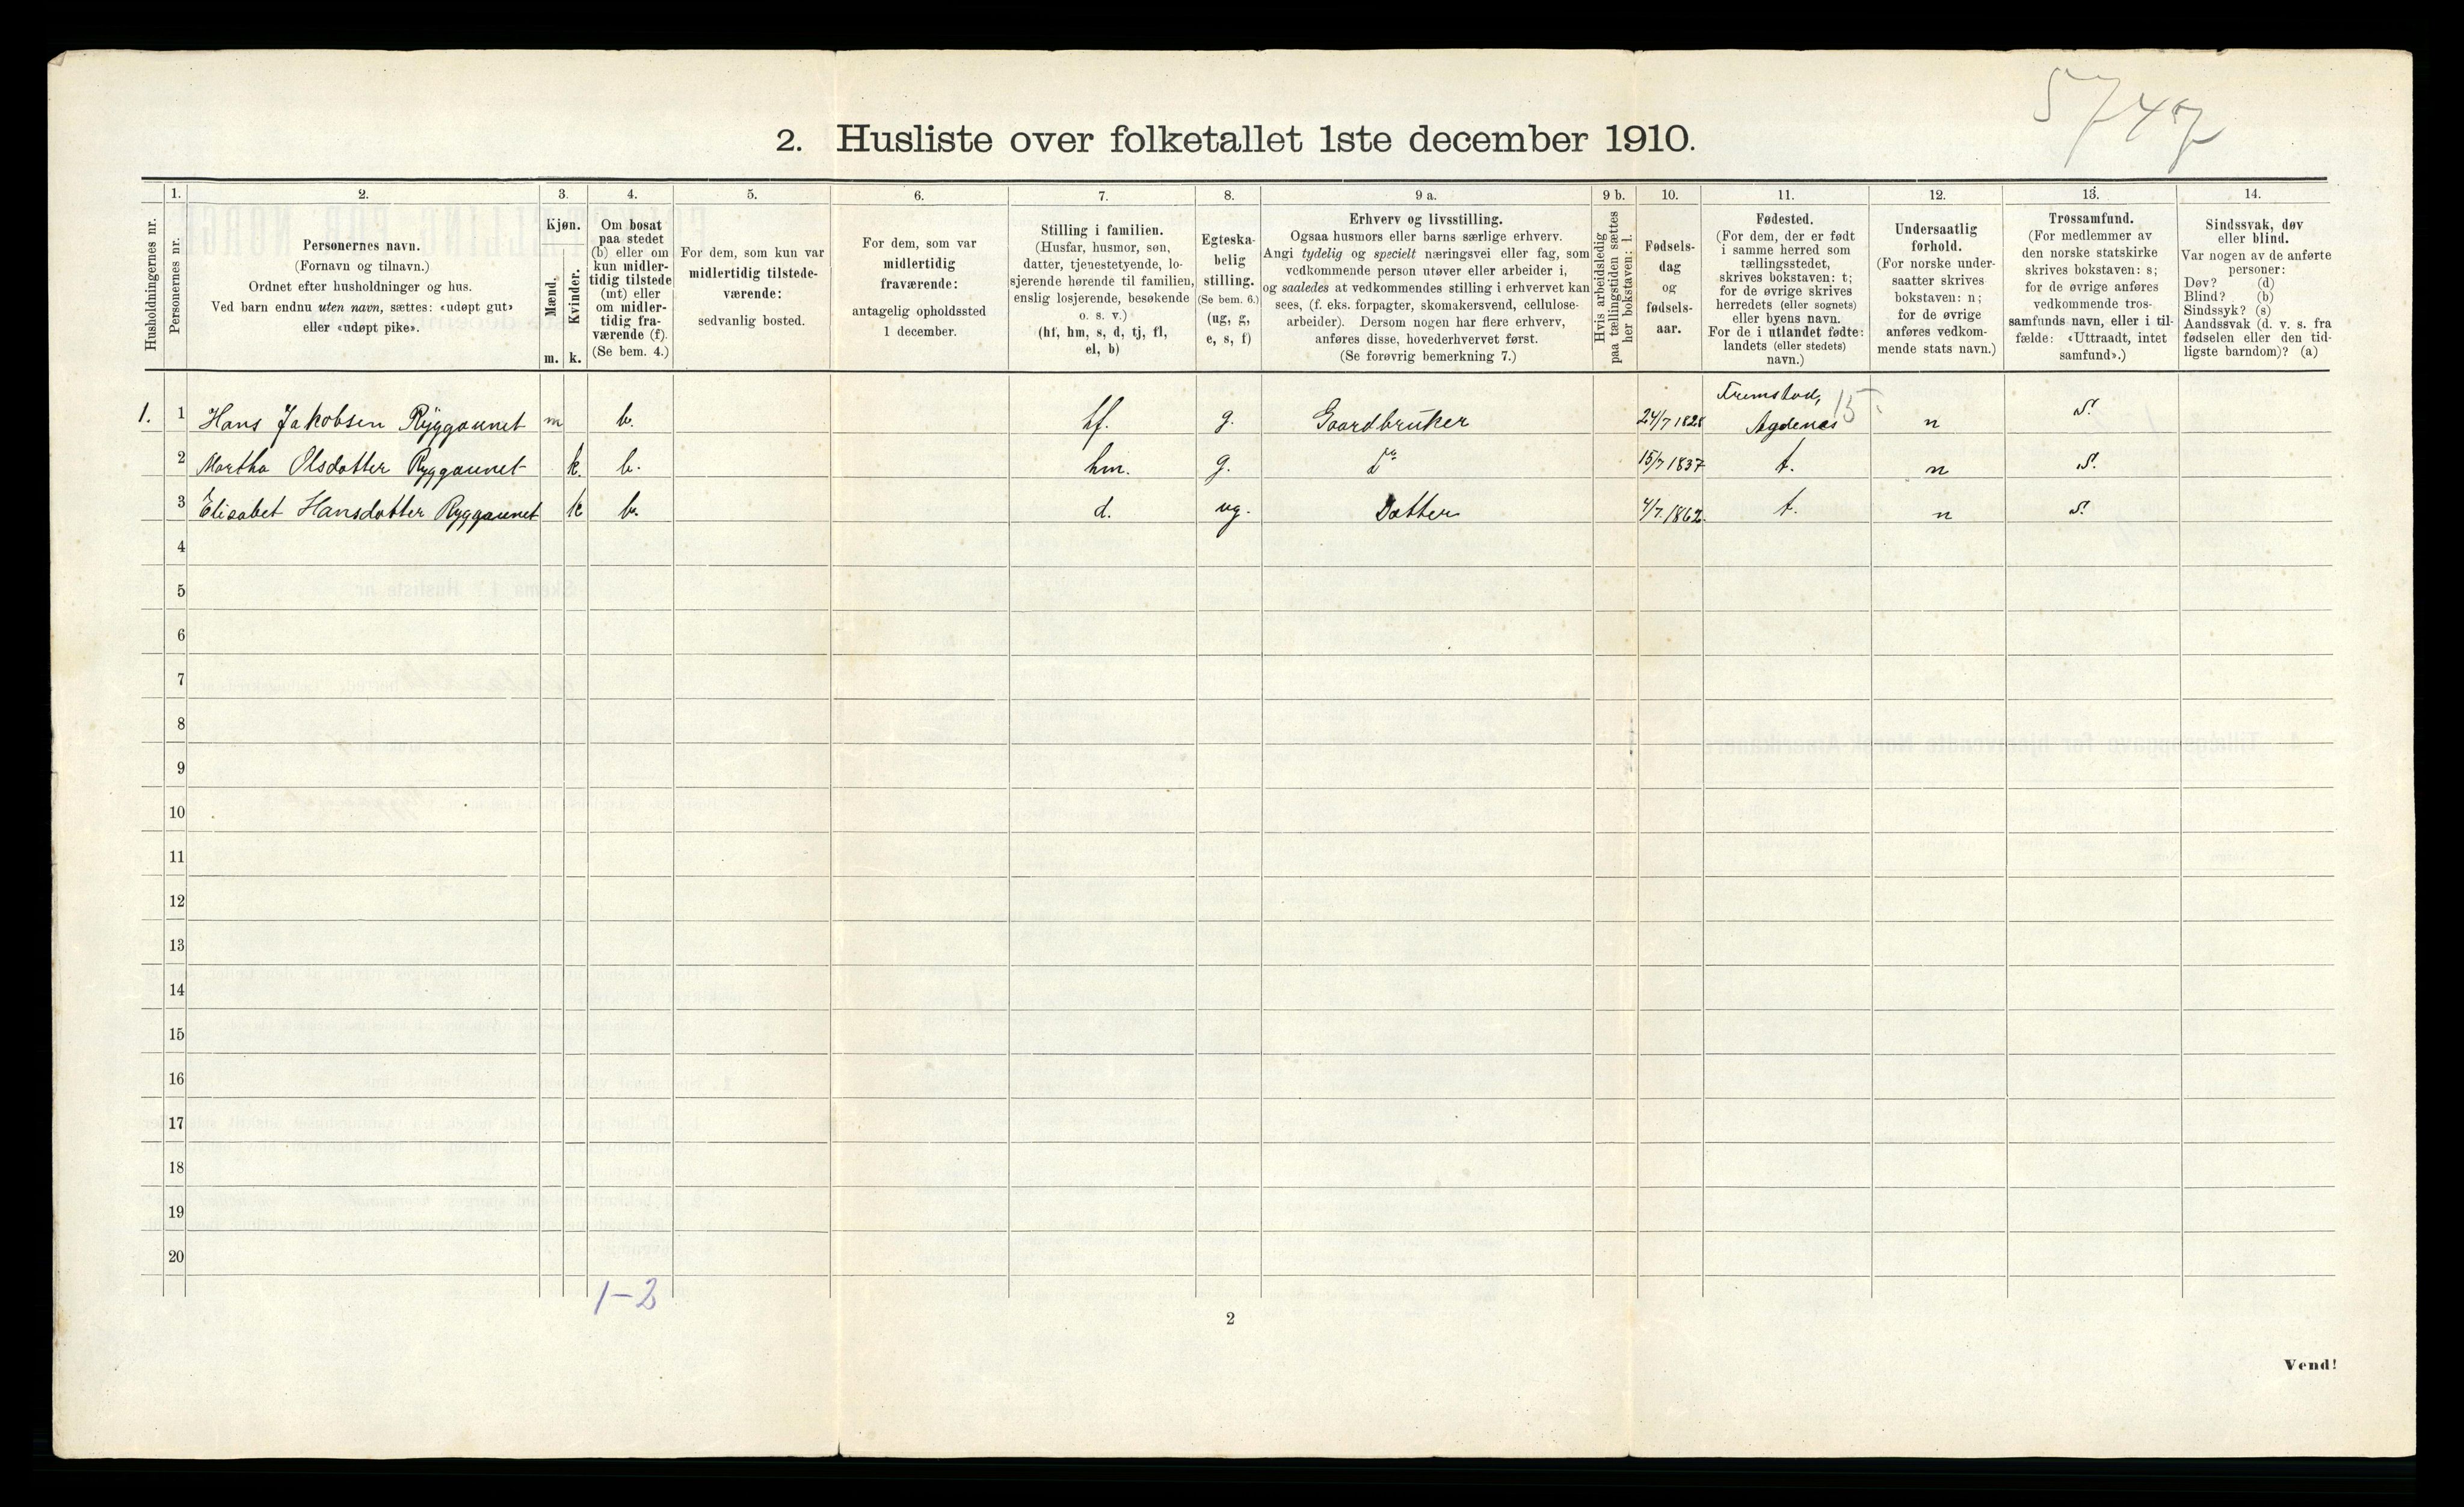 5747
2. Husliste over folketallet 1ste december 1910.
Husholdningernes nr.
1.
Personernes nr.
2.
Personernes navn.
(Fornavn og tilnavn.)
Ordnet efter husholdninger og hus.
Ved barn endnu uten navn, sættes: «udøpt gut»
eller «udøpt pike».
3.
Kjøn.
Mænd.
Kvinder.
m. k.
4.
Om bosat
paa stedet
(b) eller om
kun midler-
tidig tilstede
(mt) eller
om midler-
tidig fra-
værende (f).
(Se bem. 4.)
5.
For dem, som kun var
midlertidig tilstede-
værende:
sedvanlig bosted.
6.
For dem, som var
midlertidig
fraværende:
antagelig opholdssted
1 december.
7.
Stilling i familien.
(Husfar, husmor, søn,
datter, tjenestetyende, lo-
sjerende hørende til familien,
enslig losjerende, besøkende
o. s. v.)
(hf, hm, s, d, tj, fl,
el, b)
8.
Egteska-
belig
stilling.
(Se bem. 6.)
(ug, g,
e, s, f)
9 a.
Erhverv og livsstilling.
Ogsaa husmors eller barns særlige erhverv.
Angi tydelig og specielt næringsvei eller fag, som
vedkommende person utøver eller arbeider i,
og saaledes at vedkommendes stilling i erhvervet kan
sees, (f. eks. forpagter, skomakersvend, cellulose-
arbeider). Dersom nogen har flere erhverv,
anføres disse, hovederhvervet først.
(Se forøvrig bemerkning 7.)
9 b.
Hvis arbeidsledig
paa tællingstiden sættes
her bokstaven: l.
10.
Fødsels-
dag
og
fødsels-
aar.
11.
Fødested.
(For dem, der er født
i samme herred som
tællingsstedet,
skrives bokstaven: t;
for de øvrige skrives
herredets (eller sognets)
eller byens navn.
For de i utlandet fødte:
landets (eller stedets)
navn.)
12.
Undersaatlig
forhold.
(For norske under-
saatter skrives
bokstaven: n;
for de øvrige
anføres vedkom-
mende stats navn.)
13.
Trossamfund.
(For medlemmer av
den norske statskirke
skrives bokstaven: s;
for de øvrige anføres
vedkommende tros-
samfunds navn, eller i til-
fælde: «Uttraadt, intet
samfund».)
14.
Sindssvak, døv
eller blind.
Var nogen av de anførte
personer:
Døv? (d)
Blind? (b)
Sindssyk? (s)
Aandssvak (d. v. s. fra
fødselen eller den tid-
ligste barndom)? (a)
1. 1 Hans Jakobsen Ryggaunet m b. hf. g. Gaardbruker 24/7 1828 Fremstad, Agdenes 15 n S.
2 Martha Olsdatter Ryggaunet k. b. hm. g. 15/7 1837 t. n S.
3 Elisabet Hansdatter Ryggaunet k b. d. ug. Datter 4/7. 1862. t. n S.
4
5
6
7
8
9
10
11
12
13
14
15
16
17
18
19
20
1-2
2
Vend!